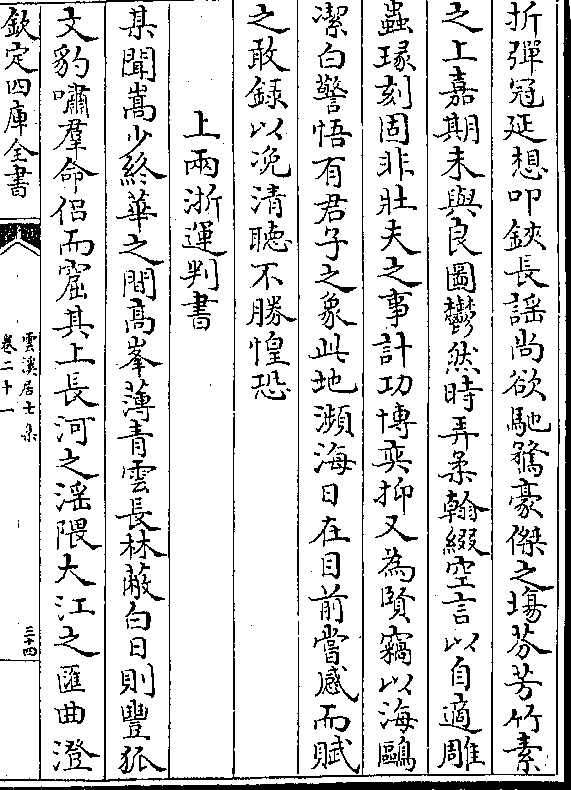 折彈冠延想叩鋏長謡尚欲馳騖豪傑之塲芬芳竹素
之上嘉期未與良圖鬱然時弄柔翰綴空言以自適雕
蟲瑑刻固非壯夫之事計功博奕抑又為賢竊以海鷗
潔白警悟有君子之象此地瀕海日在目前嘗感而賦
之敢録以浼清聽不勝惶恐
上兩浙運判書
某聞嵩少終華之間髙峯薄青雲長林蔽白日則豐狐
文豹嘯羣命侣而窟其上長河之滛隈大江之匯曲澄
欽定四庫全書
雲溪居士集
卷二十一
三十四